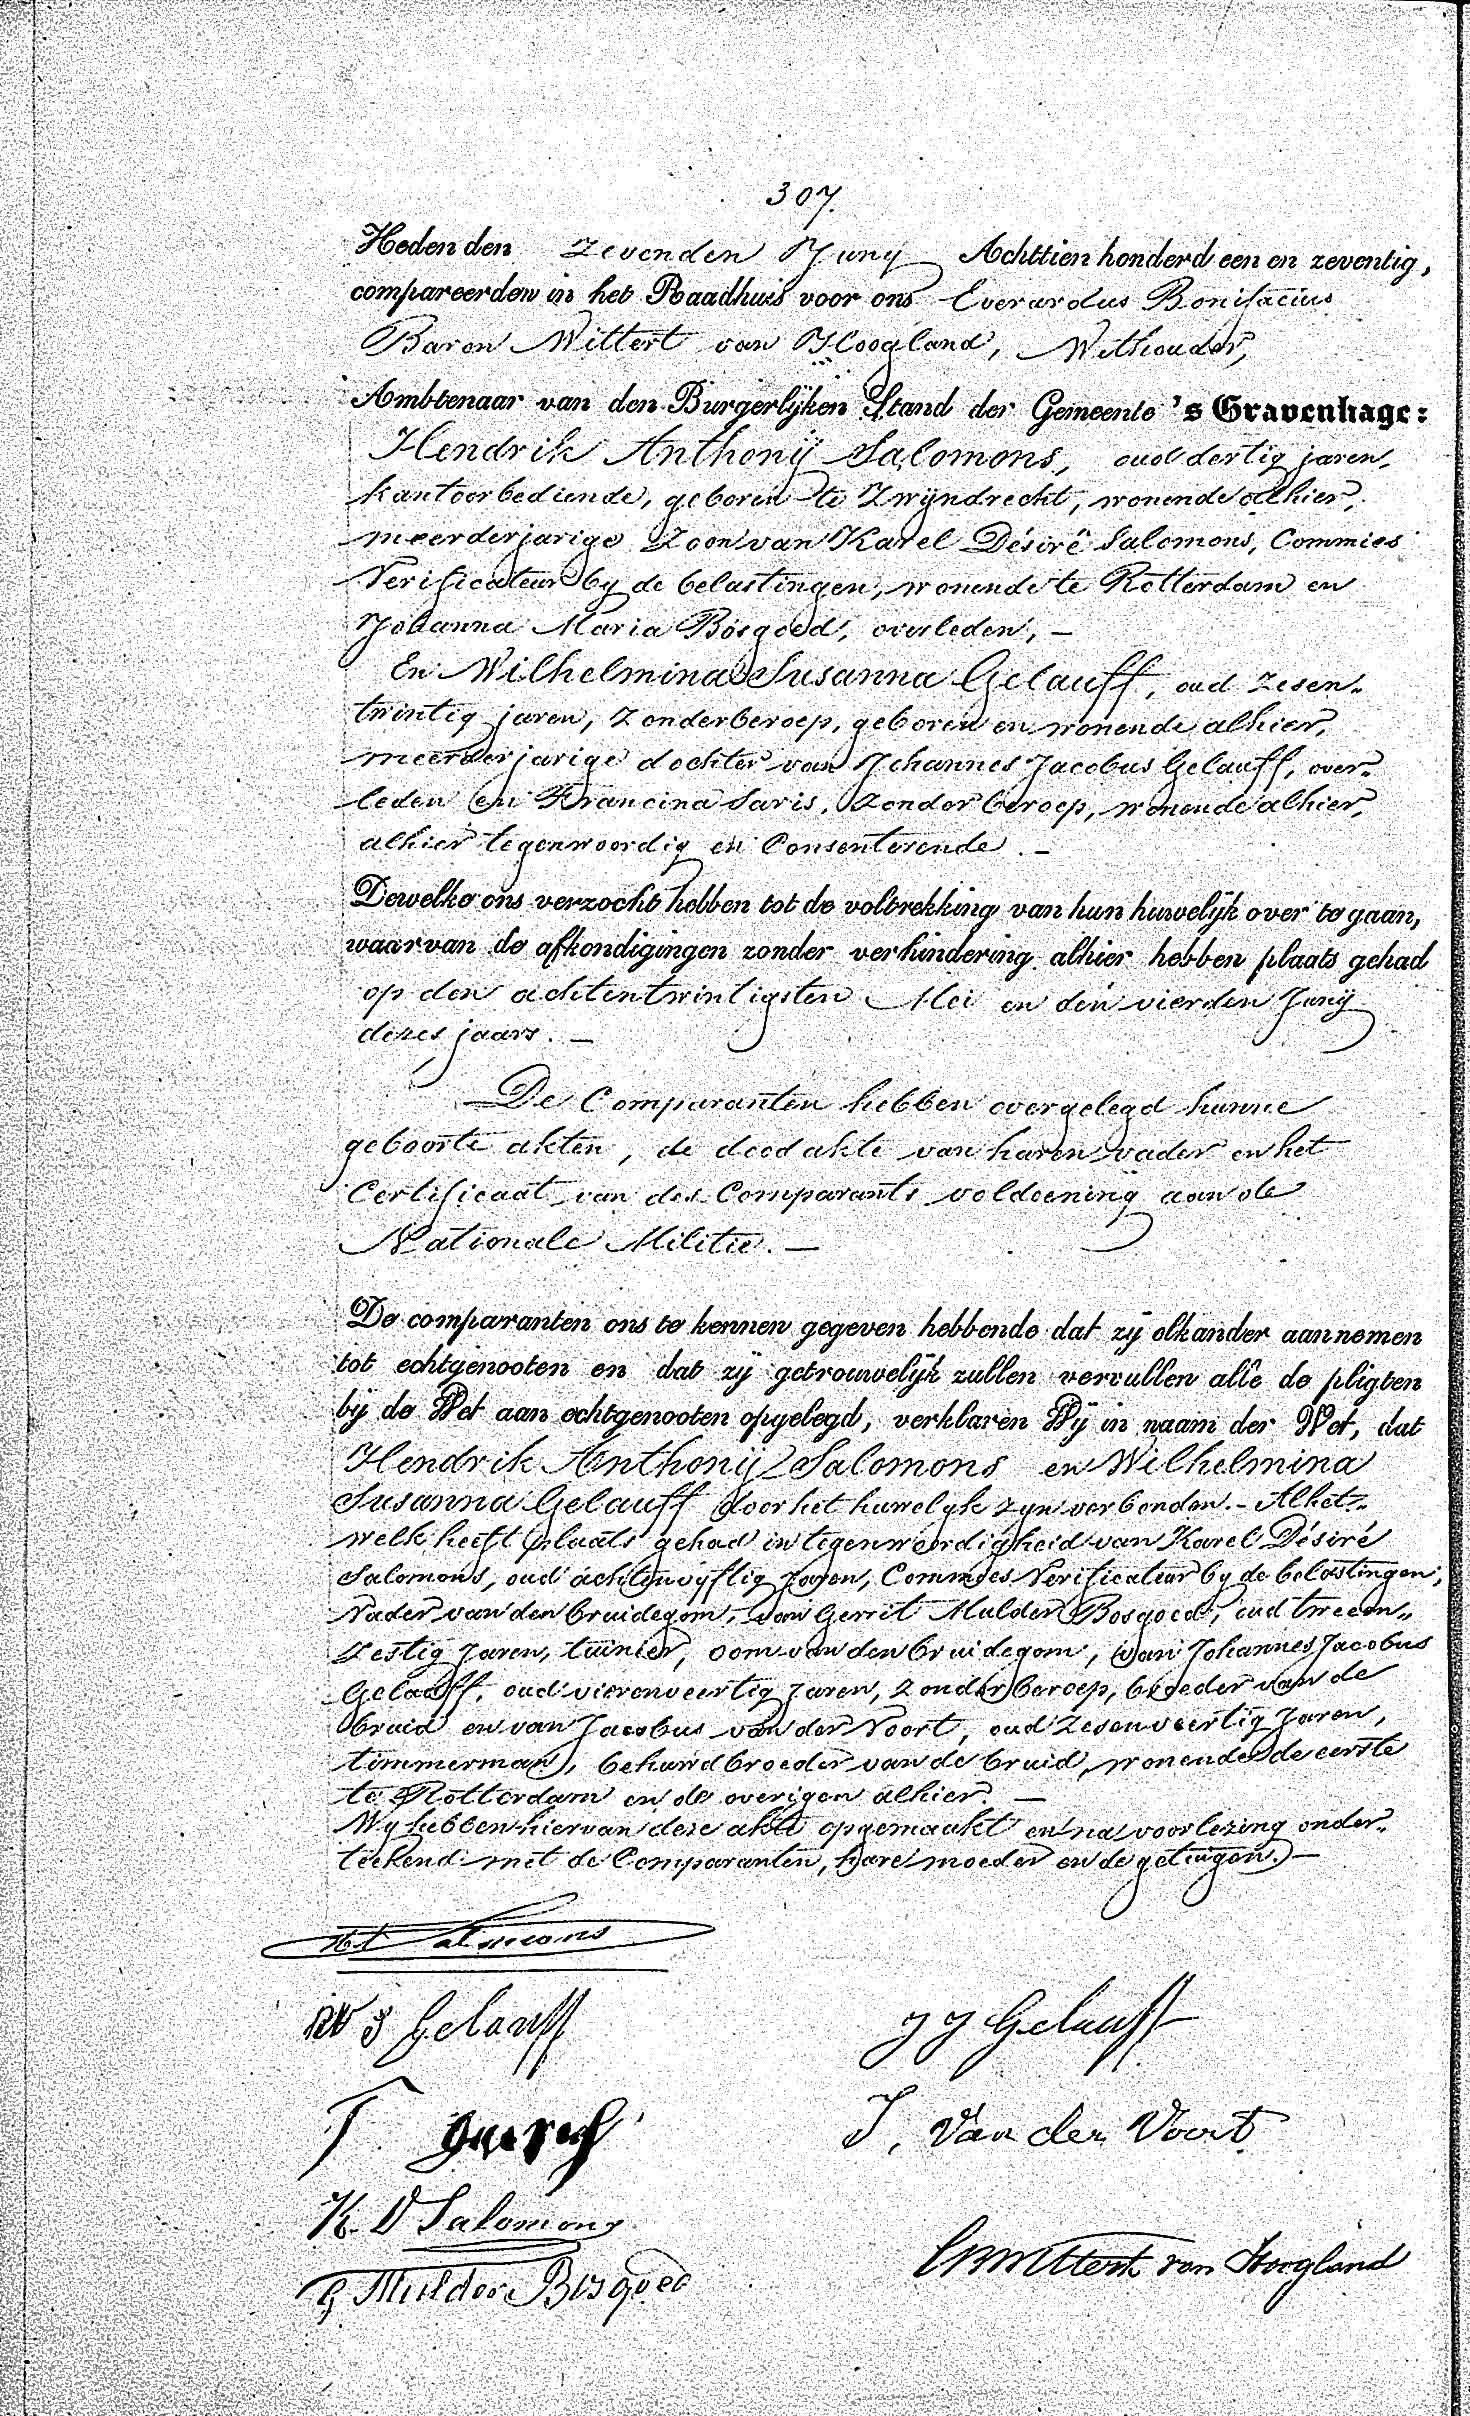 307.
Heden den zevenden Juny Achttien honderd een en zeventig,
compareerden in het Raadhuis voor ons Everardus Bonifacius
Baron Wittert van Hoogland, Wethouder,
Ambtenaar van den Burgerlijken Stand der Gemeente 's Gravenhage:
Hendrik Anthonij Salomons, oud dertig jaren,
kantoorbediende, geboren te Zwijndrecht, wonende alhier,
meerderjarige zoon van Karel Désiré Salomons, Commies
Verificateur by de belastingen, wonende te Rotterdam en
Johanna Maria Bosgoed, overleden, —
En Wilhelmina Susanna Gelauff, oud zesen„
twintig jaren, zonder beroep, geboren en wonende alhier,
meerderjarige dochter van Johannes Jacobus Gelauff, over„
leden en Francina Saris, zonder beroep, wonende alhier,
alhier tegenwoordig en Consenterende. —
Dewelke ons verzocht hebben tot de voltrekking van hun huwelijk over te gaan,
waarvan de afkondigingen zonder verhindering alhier hebben plaats gehad
op den achtentwintigsten Mei en den vierden Junij
dezes jaars. —
De Comparanten hebben overgelegd hunne
geboorte akten, de dood akte van haren vader en het
Certificaat van des Comparants voldoening aan de
Nationale Militie. —
De comparanten ons te kennen gegeven hebbende dat zij elkander aannemen
tot echtgenooten en dat zij getrouwelijk zullen vervullen alle de pligten
bij de Wet aan echtgenooten opgelegd, verklaren Wij in naam der Wet, dat
Hendrik Anthonij Salomons en Wilhelmina
Susanna Gelauff door het huwelyk zyn verbonden. - Alhet„
welk heeft plaats gehad in tegenwoordigheid van Karel Désiré
Salomons, oud achtenvyftig Jaren, Commies Verificateur by de belastingen,
Vader van den bruidegom, van Gerrit Mulder Bosgoed, oud tweeen„
zestig Jaren, tuinier, oom van den bruidegom, van Johannes Jacobus
Gelauff, oud vierenveertig Jaren, zonder beroep, broeder van de
bruid en van Jacobus van der Voort, oud zesenveertig Jaren,
timmerman, behuwdbroeder van de bruid, wonende de eerste
te Rotterdam en de overigen alhier. —
Wy hebben hiervan deze akte opgemaakt en na voorlezing onder„
teekend met de Comparanten, hare moeder en de getuigen. —
HA Salomons
W S Gelauff
J J Gelauff
F
J. van der Voort
K. D Salomons
G Mulder Bosgoed
Wittert van Hoogland